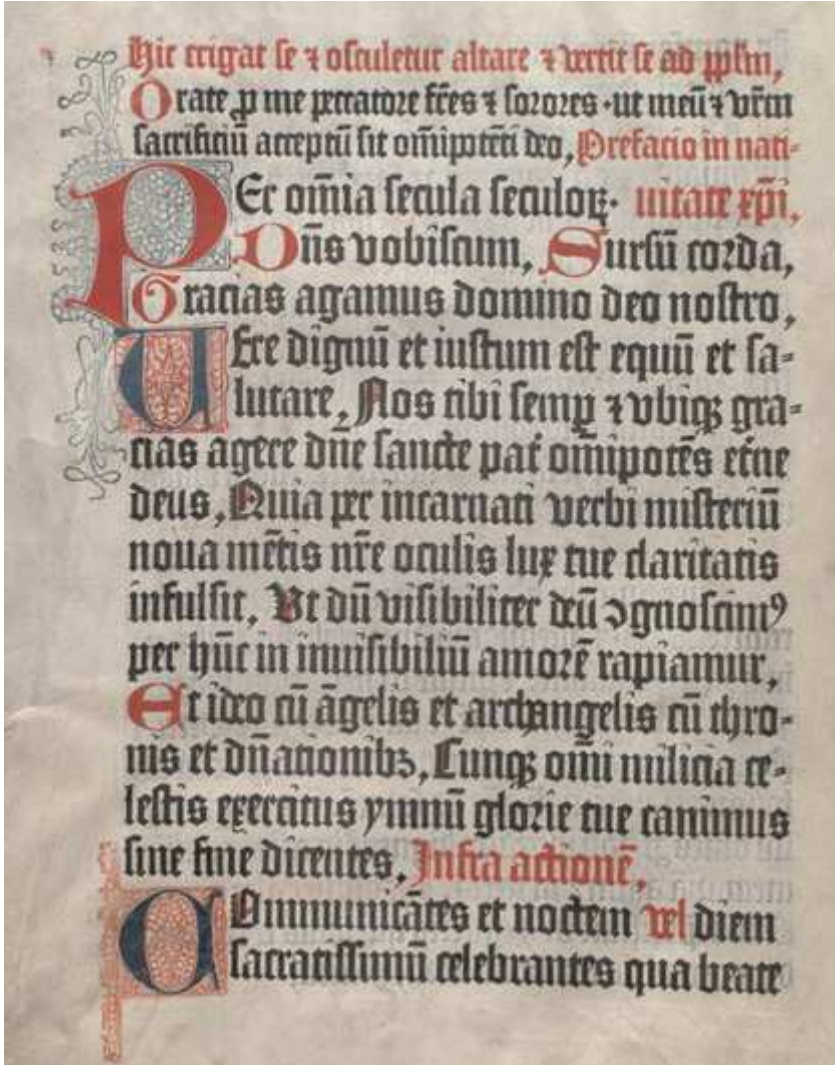 Hic erigat se ⁊ osculetur altare ⁊ vertit se ad pp̄lm,
Orate ꝓ me peccatore fr̄es ⁊ sorores · ut meū ⁊ vr̄m
sacrificiū acceptū sit om̄ipotēti deo, Prefacio in nati-
PEr om̄ia secula seculoꝝ· uitate xp̄i,
Dn̄s vobiscum, Sursū corda,
Gracias agamus domino deo nostro,
UEre dignū et iustum est equū et sa-
lutare, Nos tibi semꝑ ⁊ vbiqꝫ gra-
cias agere dn̄e sancte pat̄ om̄ipotēs et̄ne
deus, Quia per incarnati verbi misteriū
noua mētis nr̄e oculis lux tue claritatis
infulsit, Vt dū visibiliter deū ꝯgnoscimꝰ
per hūc in inuisibiliū amorē rapiamur,
Et ideo cū āgelis et archangelis cū thro-
nis et dn̄ationibꝫ, Cunqꝫ om̄i milicia ce-
lestis exercitus ymnū glorie tue canimus
sine fine dicentes, Infra actionē,
COmmunicātes et noctem vel diem
sacratissimū celebrantes qua beate